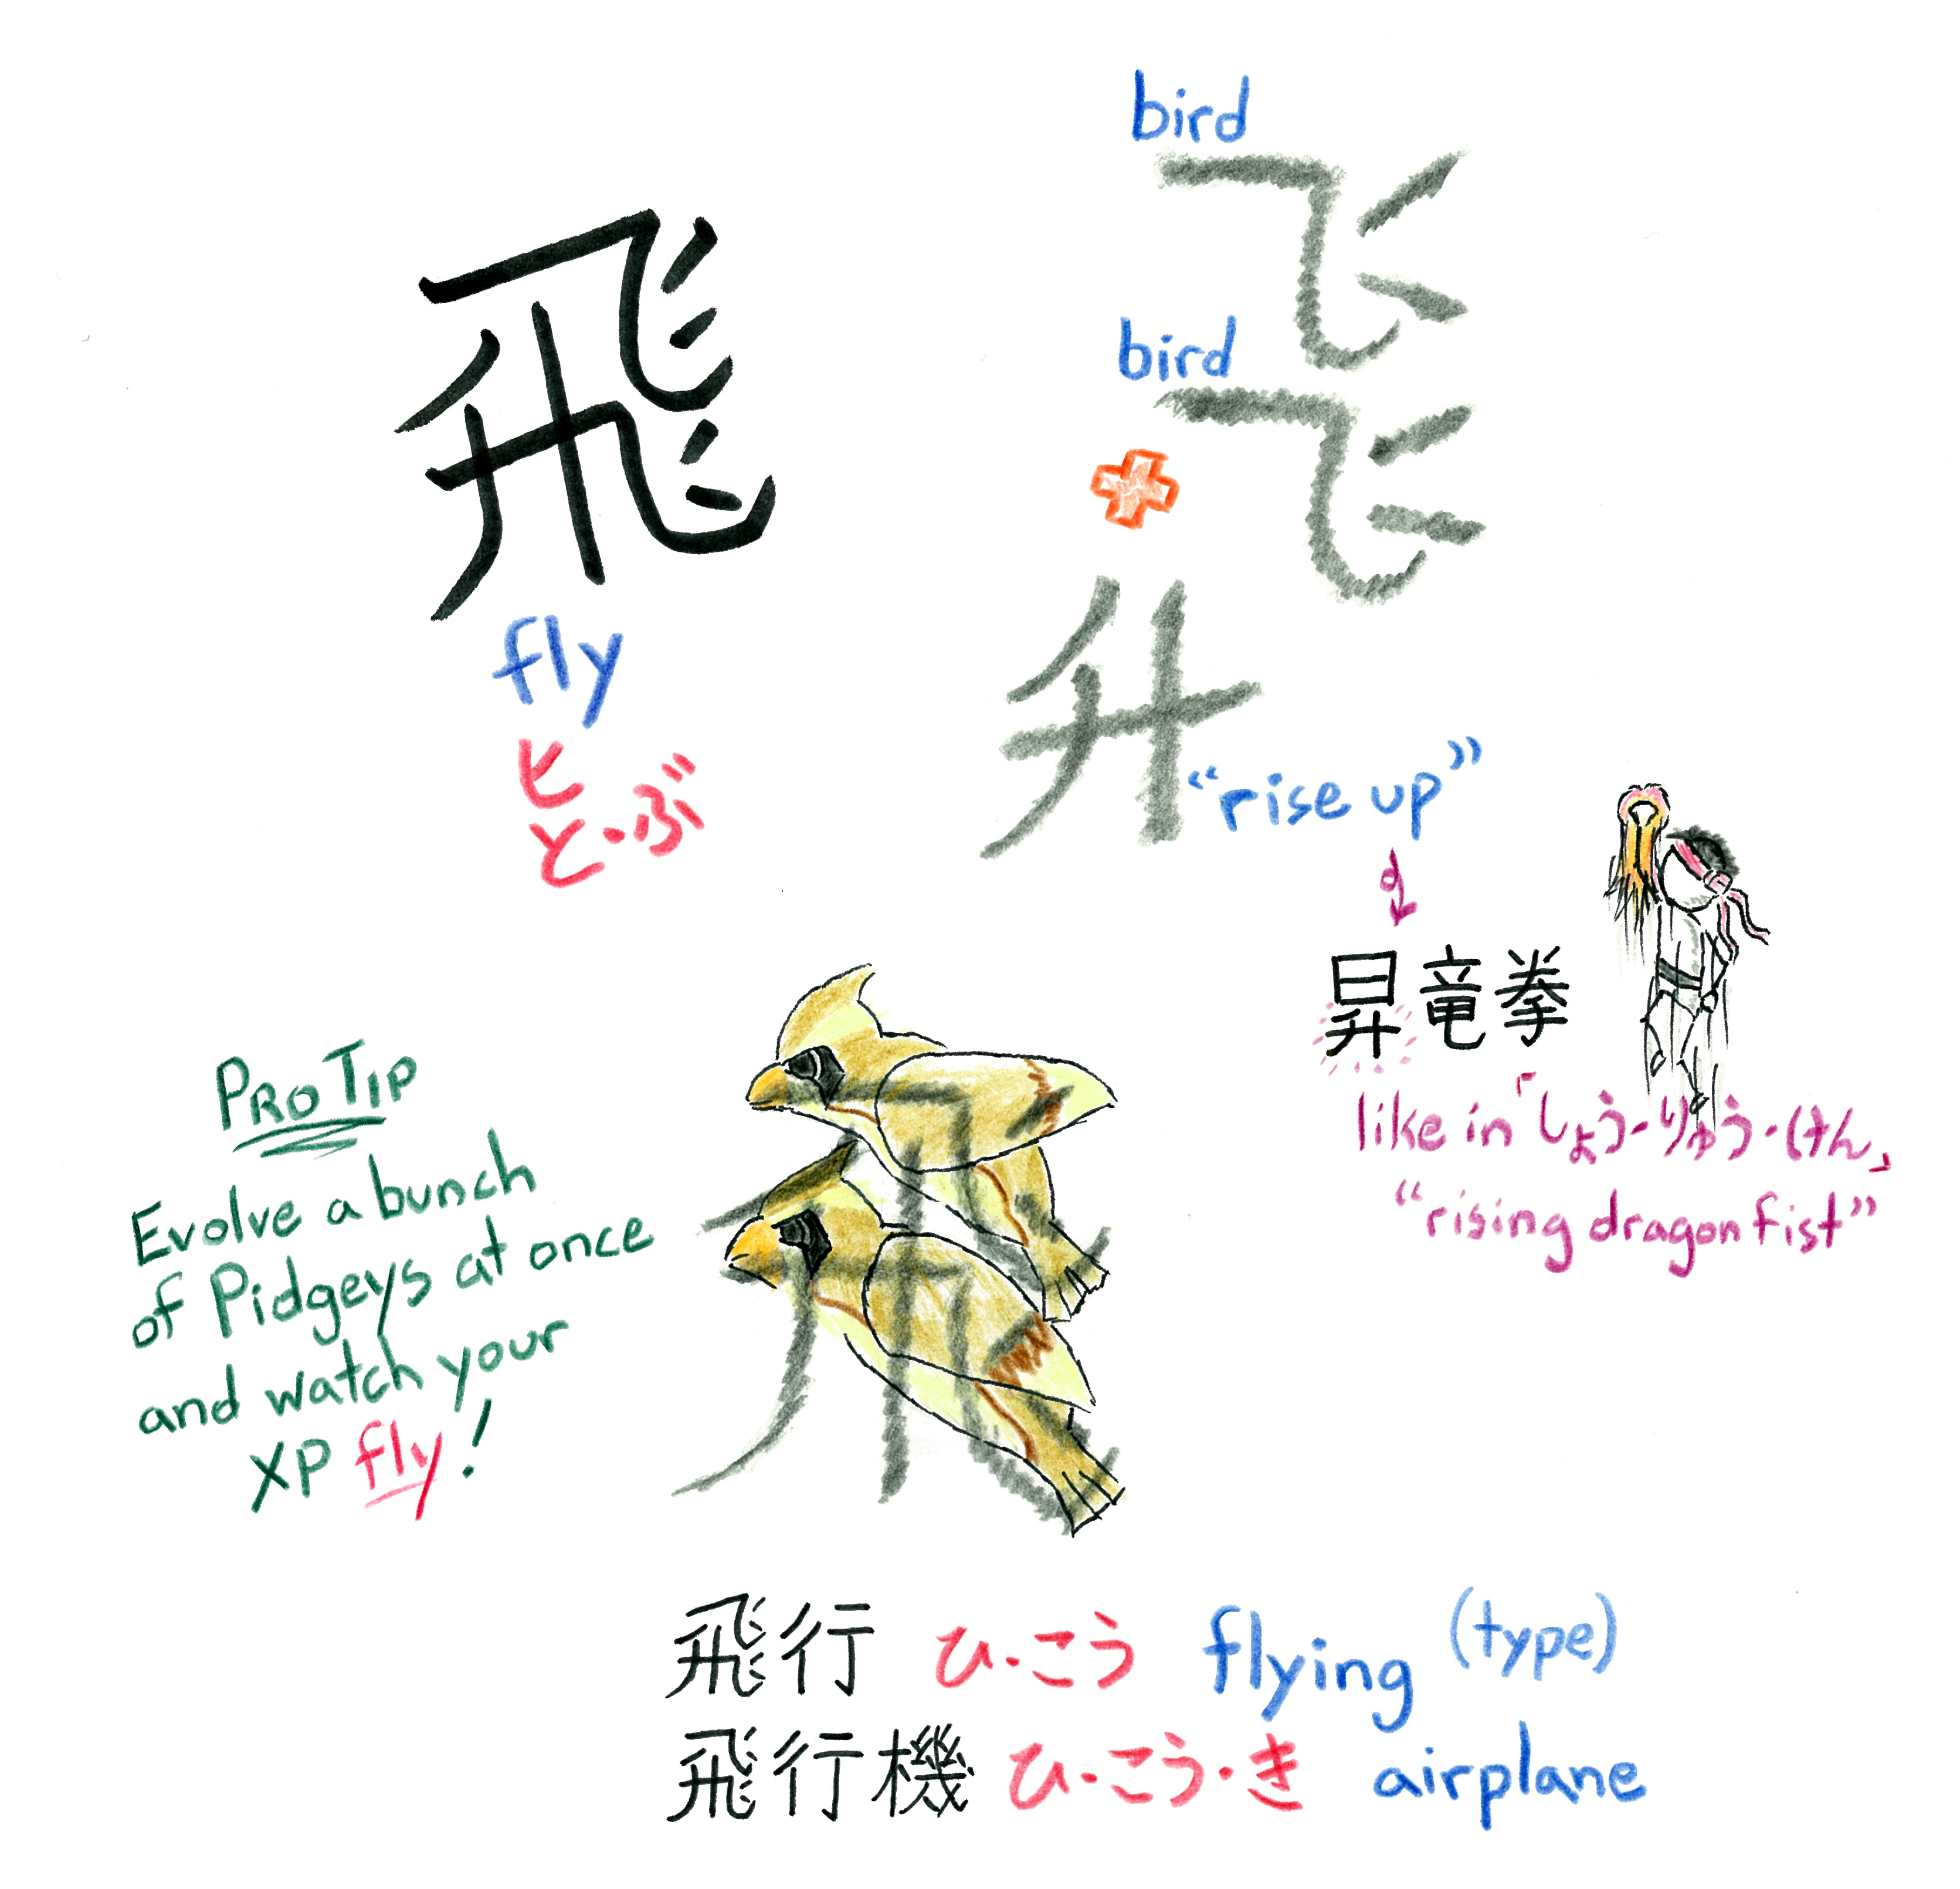 飛
fly
ヒ
と・ぶ
bird
飞
bird
飞
升
“rise up”
昇竜拳
like in「しょう・りゅう・けん」
“rising dragon fist”
PRO TIP
Evolve a bunch
of Pidgeys at once
and watch your
XP fly!
飛行 ひ・こう flying (type)
飛行機 ひ・こう・き airplane